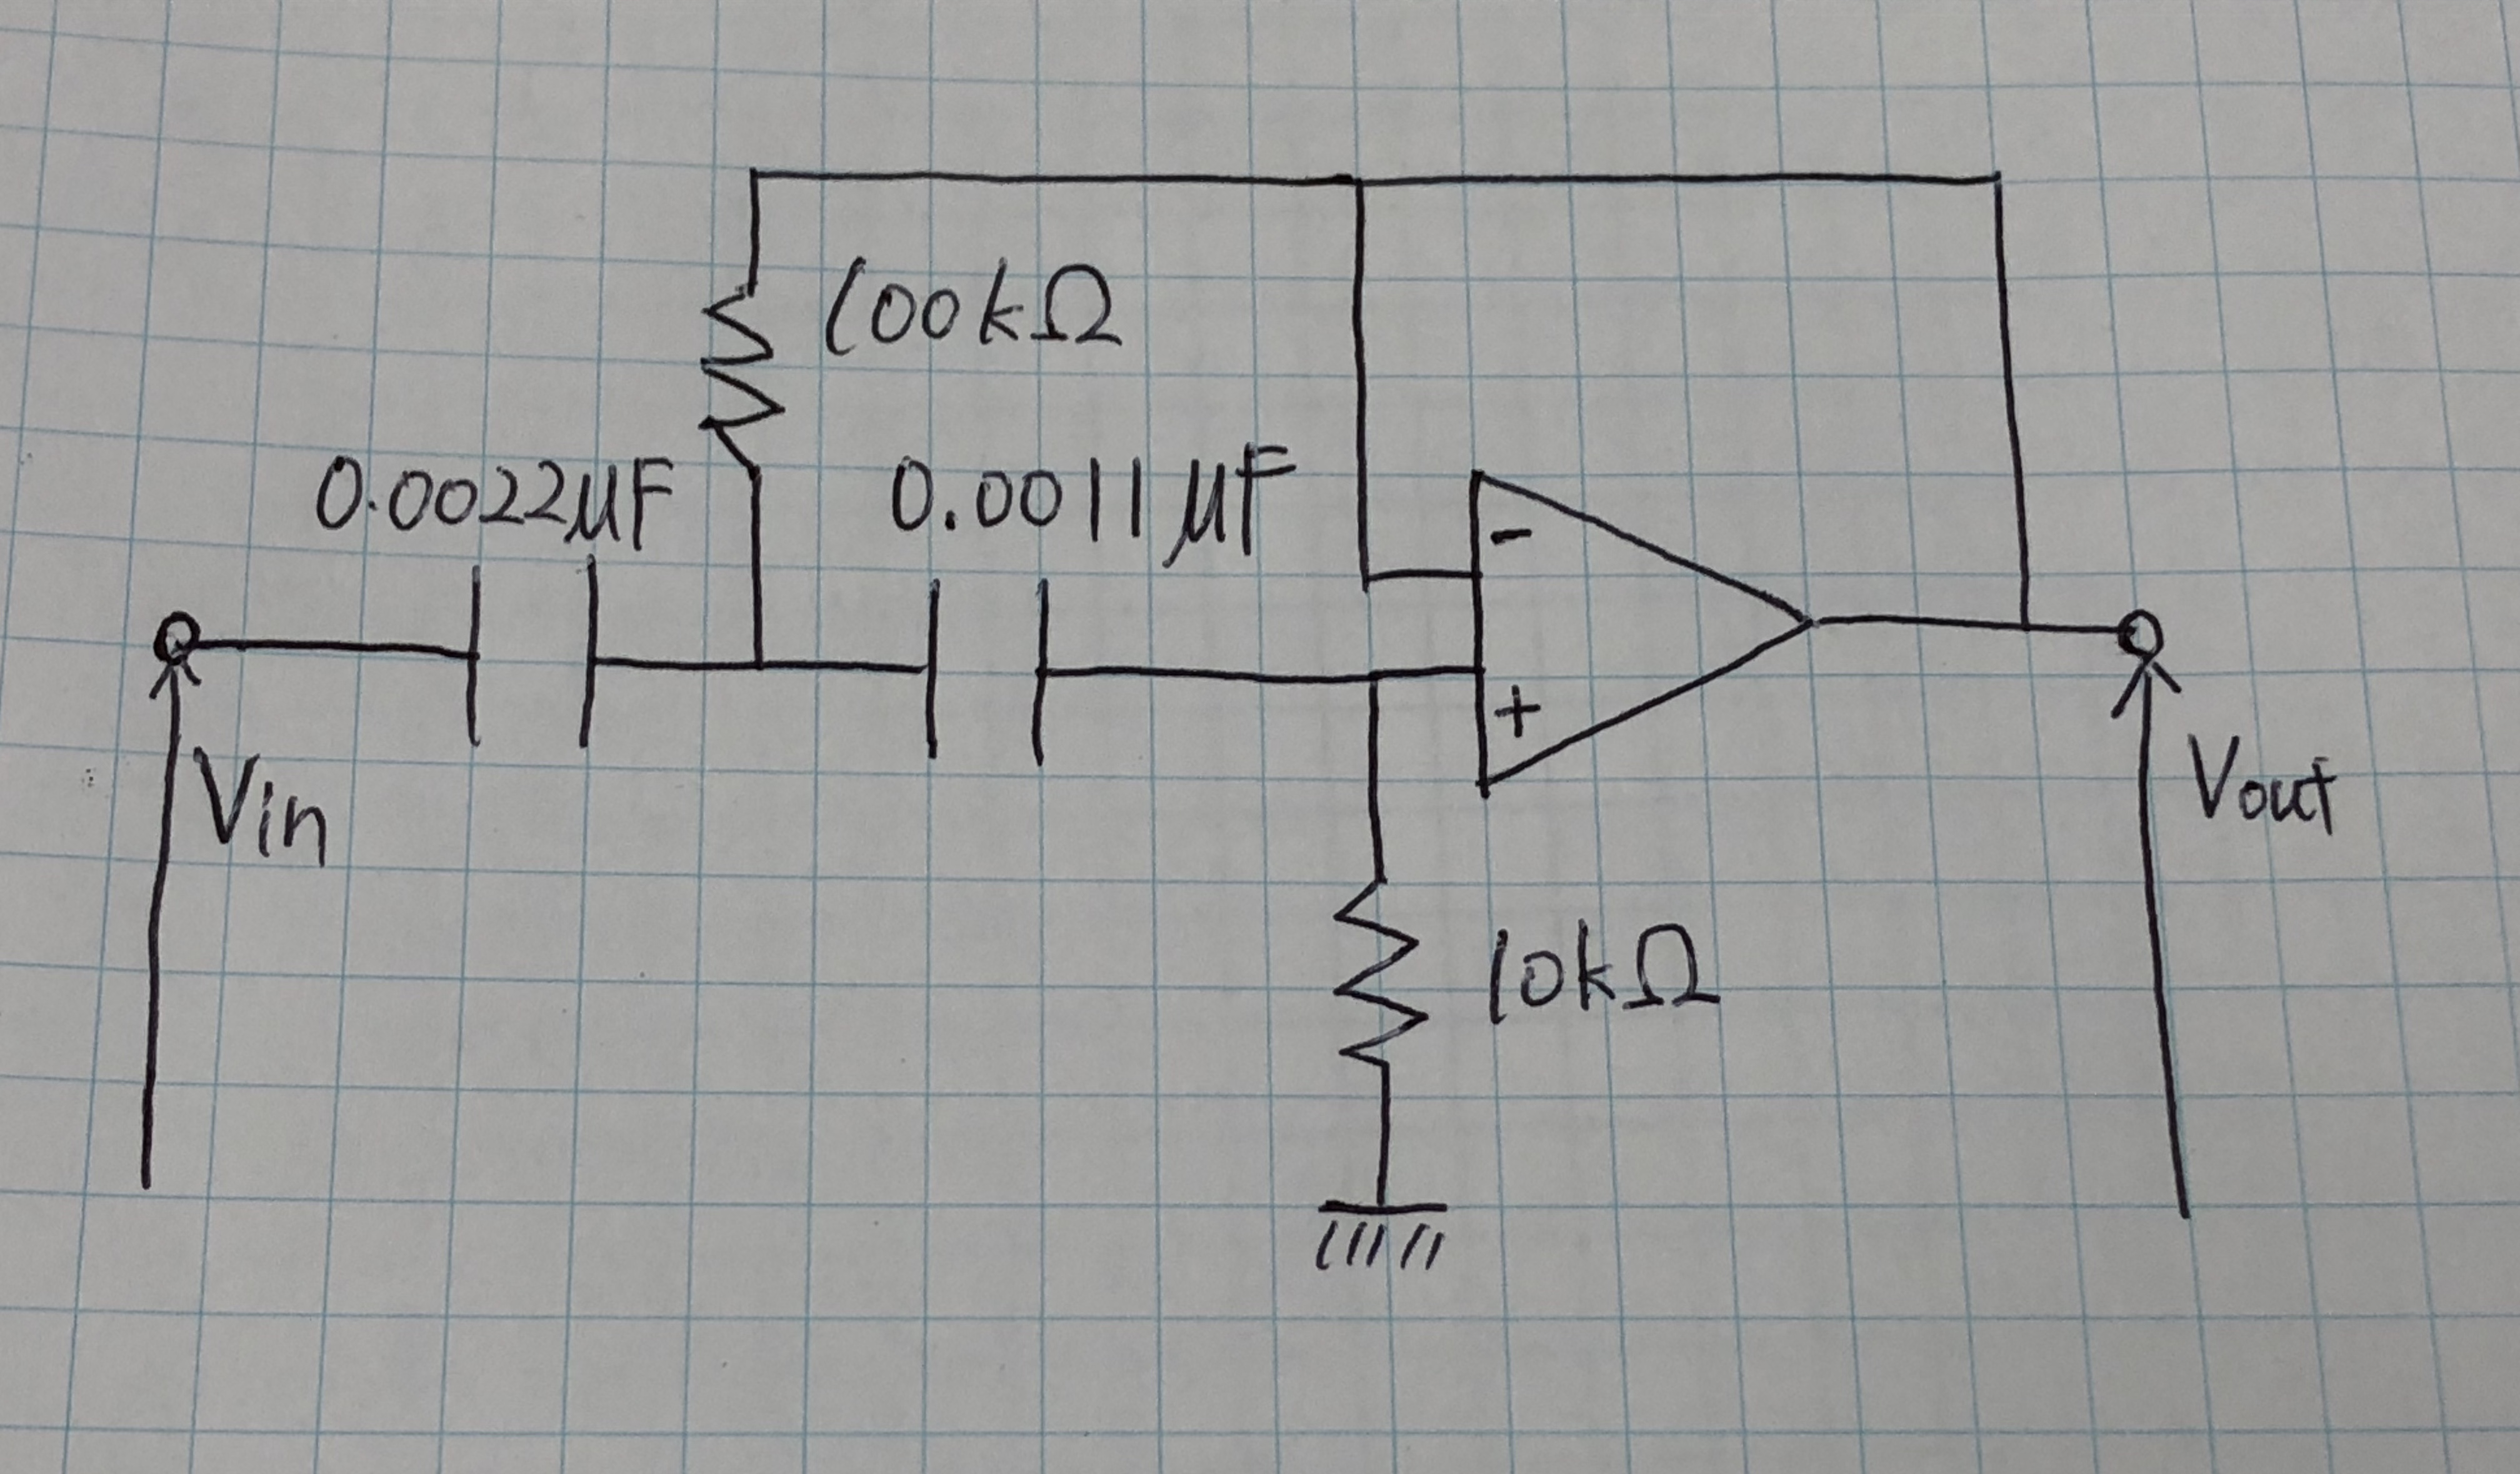 100kΩ
0.0022μF
0.0011μF
-
+
Vin
Vout
10kΩ